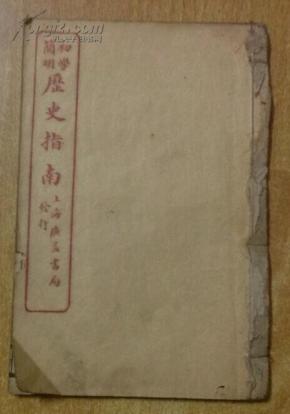 初學
簡明
歷史指南
上海廣益書局
發行